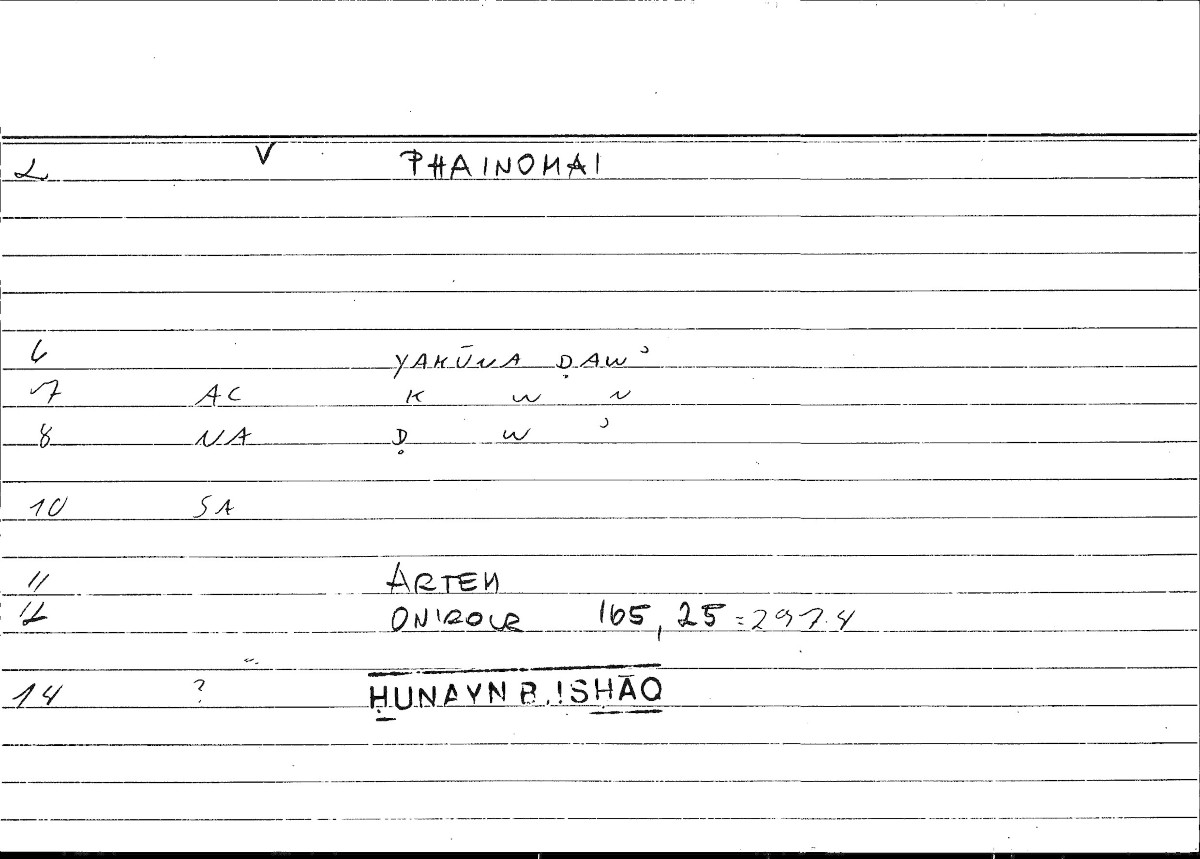 2 V PHAINOMAI
6 YAKŪNA ḌAWʾ
7 AC K W N
8 NA Ḍ W ʾ
10 SA
11 ARTEM
12 ONIROCR 165, 25 = 297.4
14 ? ḤUNAYN B. ISḤĀQ